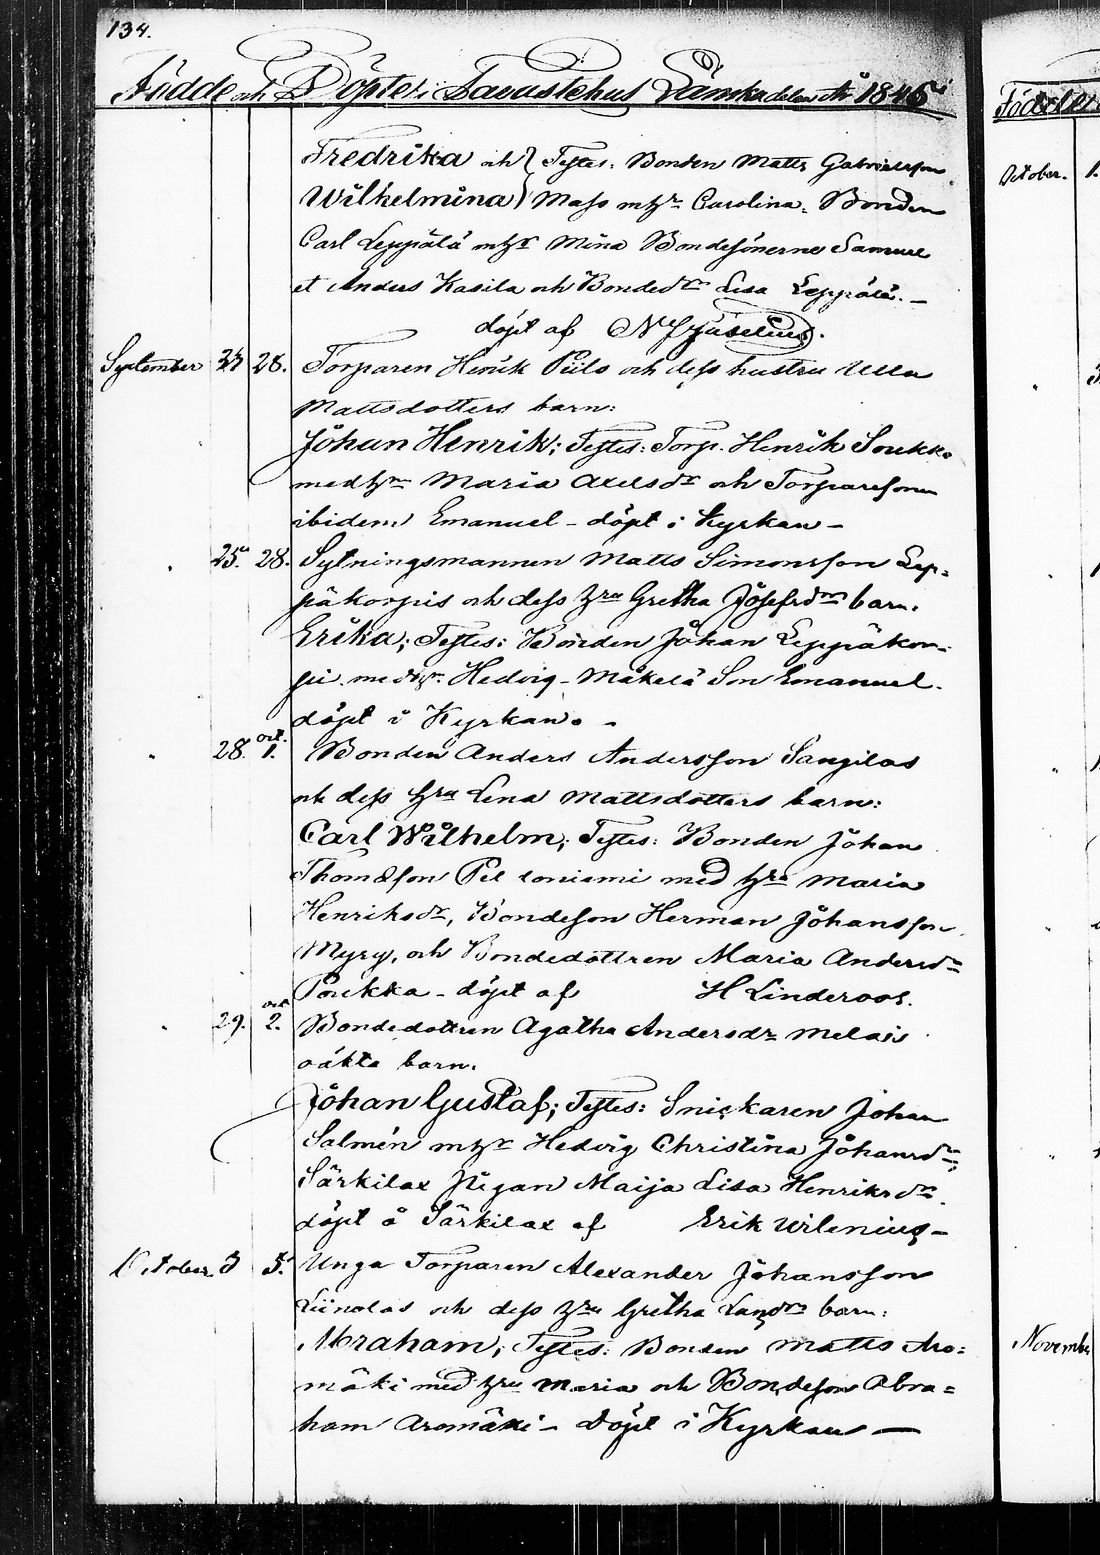 134.
Födde och Döpte i Tavastehus Länsks delen År 1846
Födde
Fredrika och } Testes: Bonden Matts Gabrielsson
Wilhelmina } Mass m hr Carolina, Bonden
Carl Leppälä m hr Mina Bondesönerne Samuel
et Anders Kasila och Bonded:r Lisa Leppälä. –
döpt af
September 27 28. Torparen Henrik Piilo och dess hustru Ulla
Mattsdotters barn:
Johan Henrik; Testes: Torp. Henrik Soukko
med hr Maria Axelsdr och Torparesonen
ibidem Emanuel – döpt i Kyrkan –
" 25. 28. Sytningsmannen Matts Simonsson Lep-
päkorpis och dess hru Gretha Josefsdrs barn.
Erika; Testes: Bonden Johan Leppäkor-
pi med hr. Hedvig – Mäkelä Son Emanuel.
döpt i Kyrkan. –
" 28. oct. 1. Bonden Anders Andersson Saugilas
och dess hru Lena Mattsdotters barn:
Carl Wilhelm; Testes: Bonden Johan
Thomasson Peltoniemi med hru Maria
Henriksdr, Bondeson Herman Johansson
Myry, och Bondedottren Maria Andersdr
Poukka – döpt af H Linderoos.
" 29. oct 2. Bondedottren Agatha Andersdr Melais
oäkta barn.
Johan Gustaf; Testes: Snickaren Johan
Salmén m hr Hedvig Christina Johansdr,
Särkilax Pigan Maija Lisa Henriksdr.
döpt å Särkilax af Erik Wilenius –
October 3 5. Unga Torparen Alexander Johansson
Liinalas och dess hru Gretha barn:
Abraham; Testes: Bonden Matts Aro-
mäki med hru Maria och Bondeson Abra-
ham Aromäki – döpt i Kyrkan —
October. 1.
November